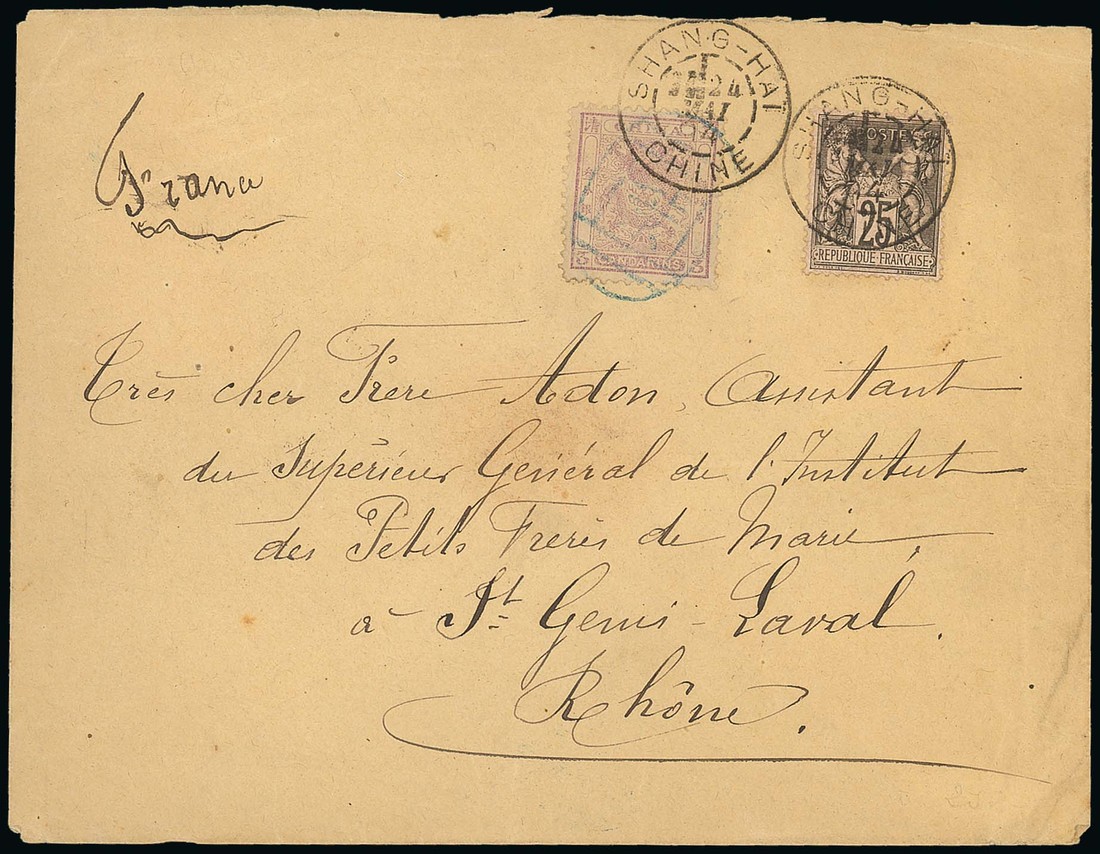 SHANG-HAI
1
24
MAI
94
CHINE
CHINA
3 CANDARINS 3
SHANG-HAI
24
MAI
CHINE
POSTES
25
REPUBLIQUE FRANÇAISE
France
Très cher Frère Adon, Assistant
du Supérieur Général de l'Institut
des Petits Frères de Marie,
à St Genis-Laval.
Rhône.